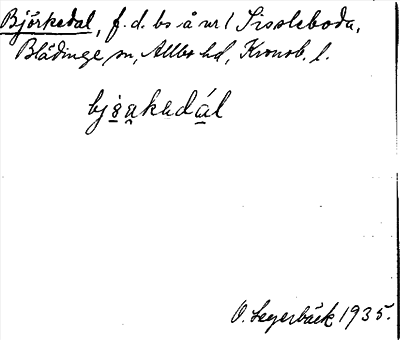 Björkedal, f. d. bs å nr 1 Sissleboda,
Blädinge sn, Allbo hd, Kronob. l.
bjö̱rkedál
O. Segerbäck 1935.